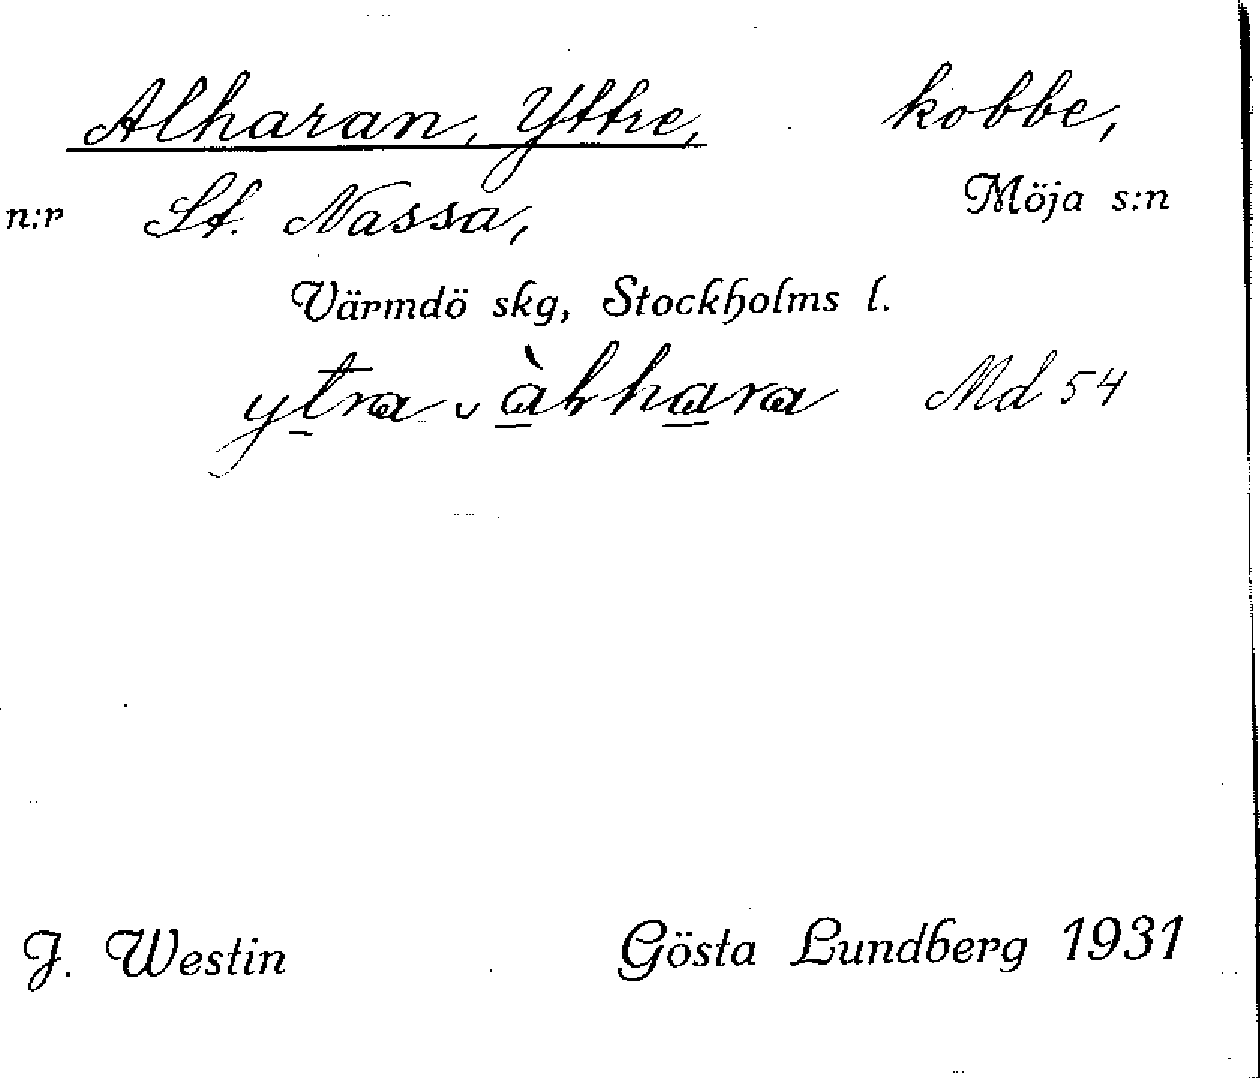 Alharan, Yttre, kobbe,
n:r St. Nassa, Möja s:n
Värmdö skg, Stockholms l.
ytra Md 54
J. Westin Gösta Lundberg 1931